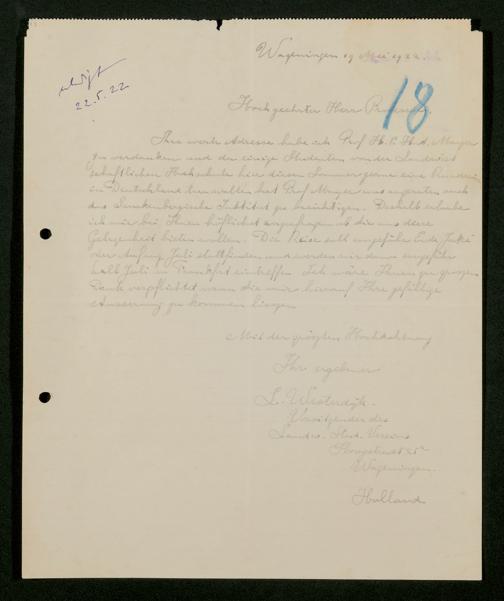 Wageningen 19 Mai 1922
erledigt
22.5.22
18
Hochgeehrter Herr Professor,
Ihre werte Adresse habe ich Prof
zu verdanken und da einige Studenten von der Landwirt
schaftlichen Hochschule hier diesen Sommer gerne eine Rundreise
in Deutschland machen wollen hat Prof uns geraten auch
das Senckenbergische Institut zu besichtigen. Deshalb erlaube
ich mir bei Ihnen höflichst anzufragen ob Sie uns dazu
Gelegenheit bieten wollen. Die Reise soll ungefähr Ende Juni
oder Anfang Juli stattfinden und werden wir dann ungefähr
halb Juli in Frankfurt eintreffen. Ich wäre Ihnen zu grossem
Dank verpflichtet wenn Sie mir hierauf Ihre gefällige
Äusserung zu kommen liessen.
Mit der grössten Hochachtung
Ihr ergebener
L. Westerdijk.
Vorsitzender des
Landw. Stud. Vereins
Wageningen.
Holland